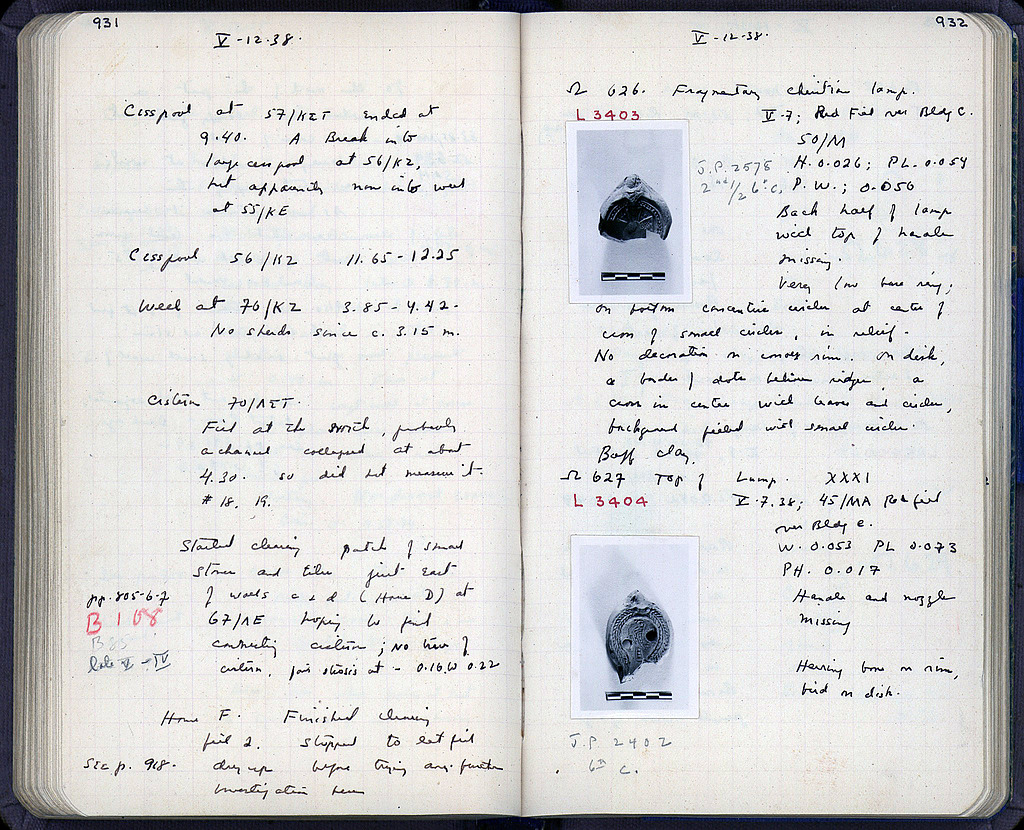 931
V-12.38.
Cesspool at 57/ΚΣΤ ended at
9.40. A Break into
large cesspool at 56/ΚΖ,
but apparently now into well
at 55/ΚΕ
Cesspool 56/ΚΖ 11.65-12.25
Well at 70/ΚΖ 3.85-4.42.
No sherds since c. 3.15 m.
Cistern 70/ΛΣΤ.
Fill at the south, probably
a channel collapsed at about
4.30. so did not measure it.
# 18, 19.
Started clearing patch of small
stones and tiles just East
pp. 805-6-7 of walls c & d (House D) at
B 108 67/ΛΕ hoping to find
B 85 connecting cistern; No trace of
late V - IV cistern, at - 0.16 to 0.22
House F. Finished clearing
fill 2. Stopped to let fill
See p. 918. dry up before trying any further
investigation here
932
V-12-38.
Ω 626. Fragmentary Christian lamp.
L 3403 V-7; Red Fill over Bldg C.
50/Μ
J.P. 2578 H. 0.026; PL. 0.054
2nd 1/2 6th C, P. W.; 0.050
Back half of lamp
with top of handle
missing.
Very low base ring;
on bottom concentric circles at center of
cross of small circles, in relief.
No decoration on convex rim. On disk,
a border of dots between ridges, a
cross in centre with leaves and circles,
background filled with small circles.
Buff clay.
Ω 627 Top of Lamp. XXXI
L 3404 V.7.38; 45/ΜΑ Red fill
over Bldg C.
W. 0.053 PL 0.073
PH. 0.017
Handle and nozzle
missing
Herring bone on rim,
bird on disk.
J.P. 2402
6th C.